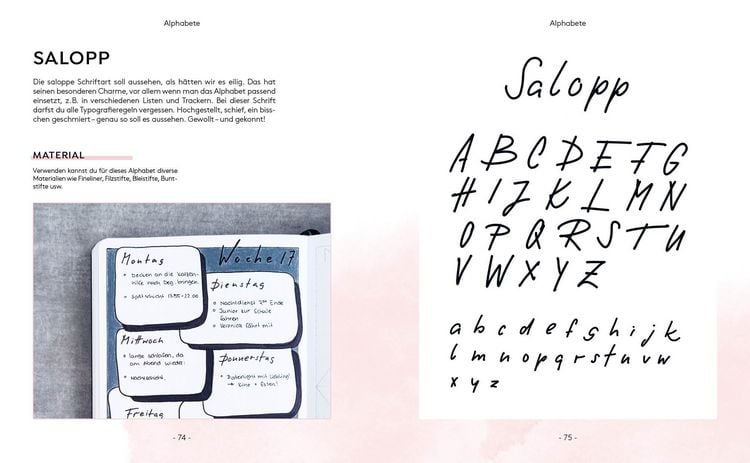 Alphabete
SALOPP
Die saloppe Schriftart soll aussehen, als hätten wir es eilig. Das hat
seinen besonderen Charme, vor allem wenn man das Alphabet passend
einsetzt, z.B. in verschiedenen Listen und Trackern. Bei dieser Schrift
darfst du alle Typografieregeln vergessen. Hochgestellt, schief, ein biss-
chen geschmiert – genau so soll es aussehen. Gewollt – und gekonnt!
MATERIAL
Verwenden kannst du für dieses Alphabet diverse
Materialien wie Fineliner, Filzstifte, Bleistifte, Bunt-
stifte usw.
Woche 17
Montag
denken an die Karten-
hilfe nach beg. bringen
Spätschicht 13.55-22.00
Dienstag
Nachtdienst Ende
Junior zur Schule
fahren
Veronica fährt mit
Mittwoch
lange schlafen, da
am Abend wieder:
Nachtschicht
Donnerstag
→ Kino + Essen!
Freitag
- 74 -
Alphabete
Salopp
A B C D E F G
H I J K L M N
O P Q R S T U
V W X Y Z
a b c d e f g h i j k
l m n o p q r s t u v w
x y z
- 75 -